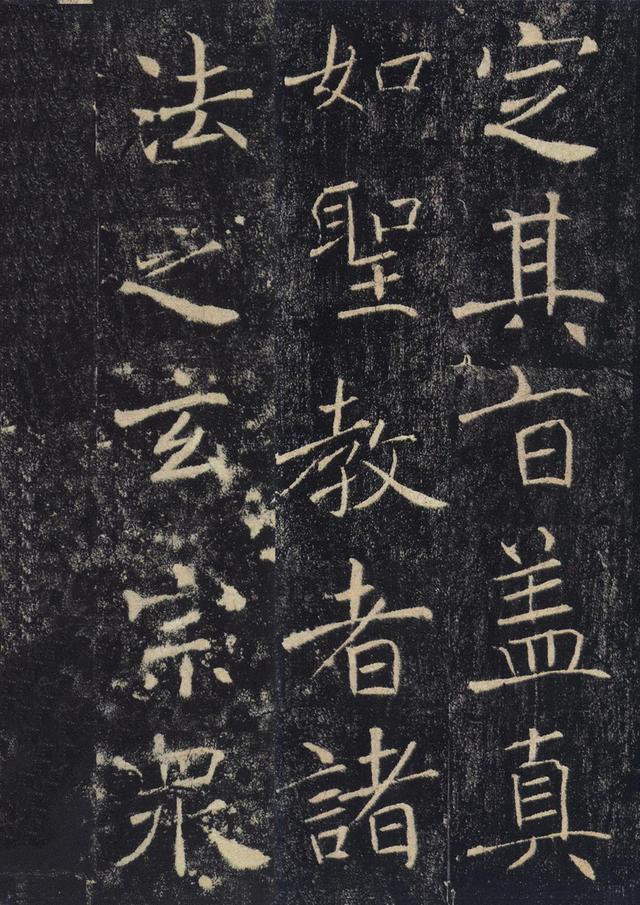 定其旨盖真
如聖教者諸
法之玄宗眾